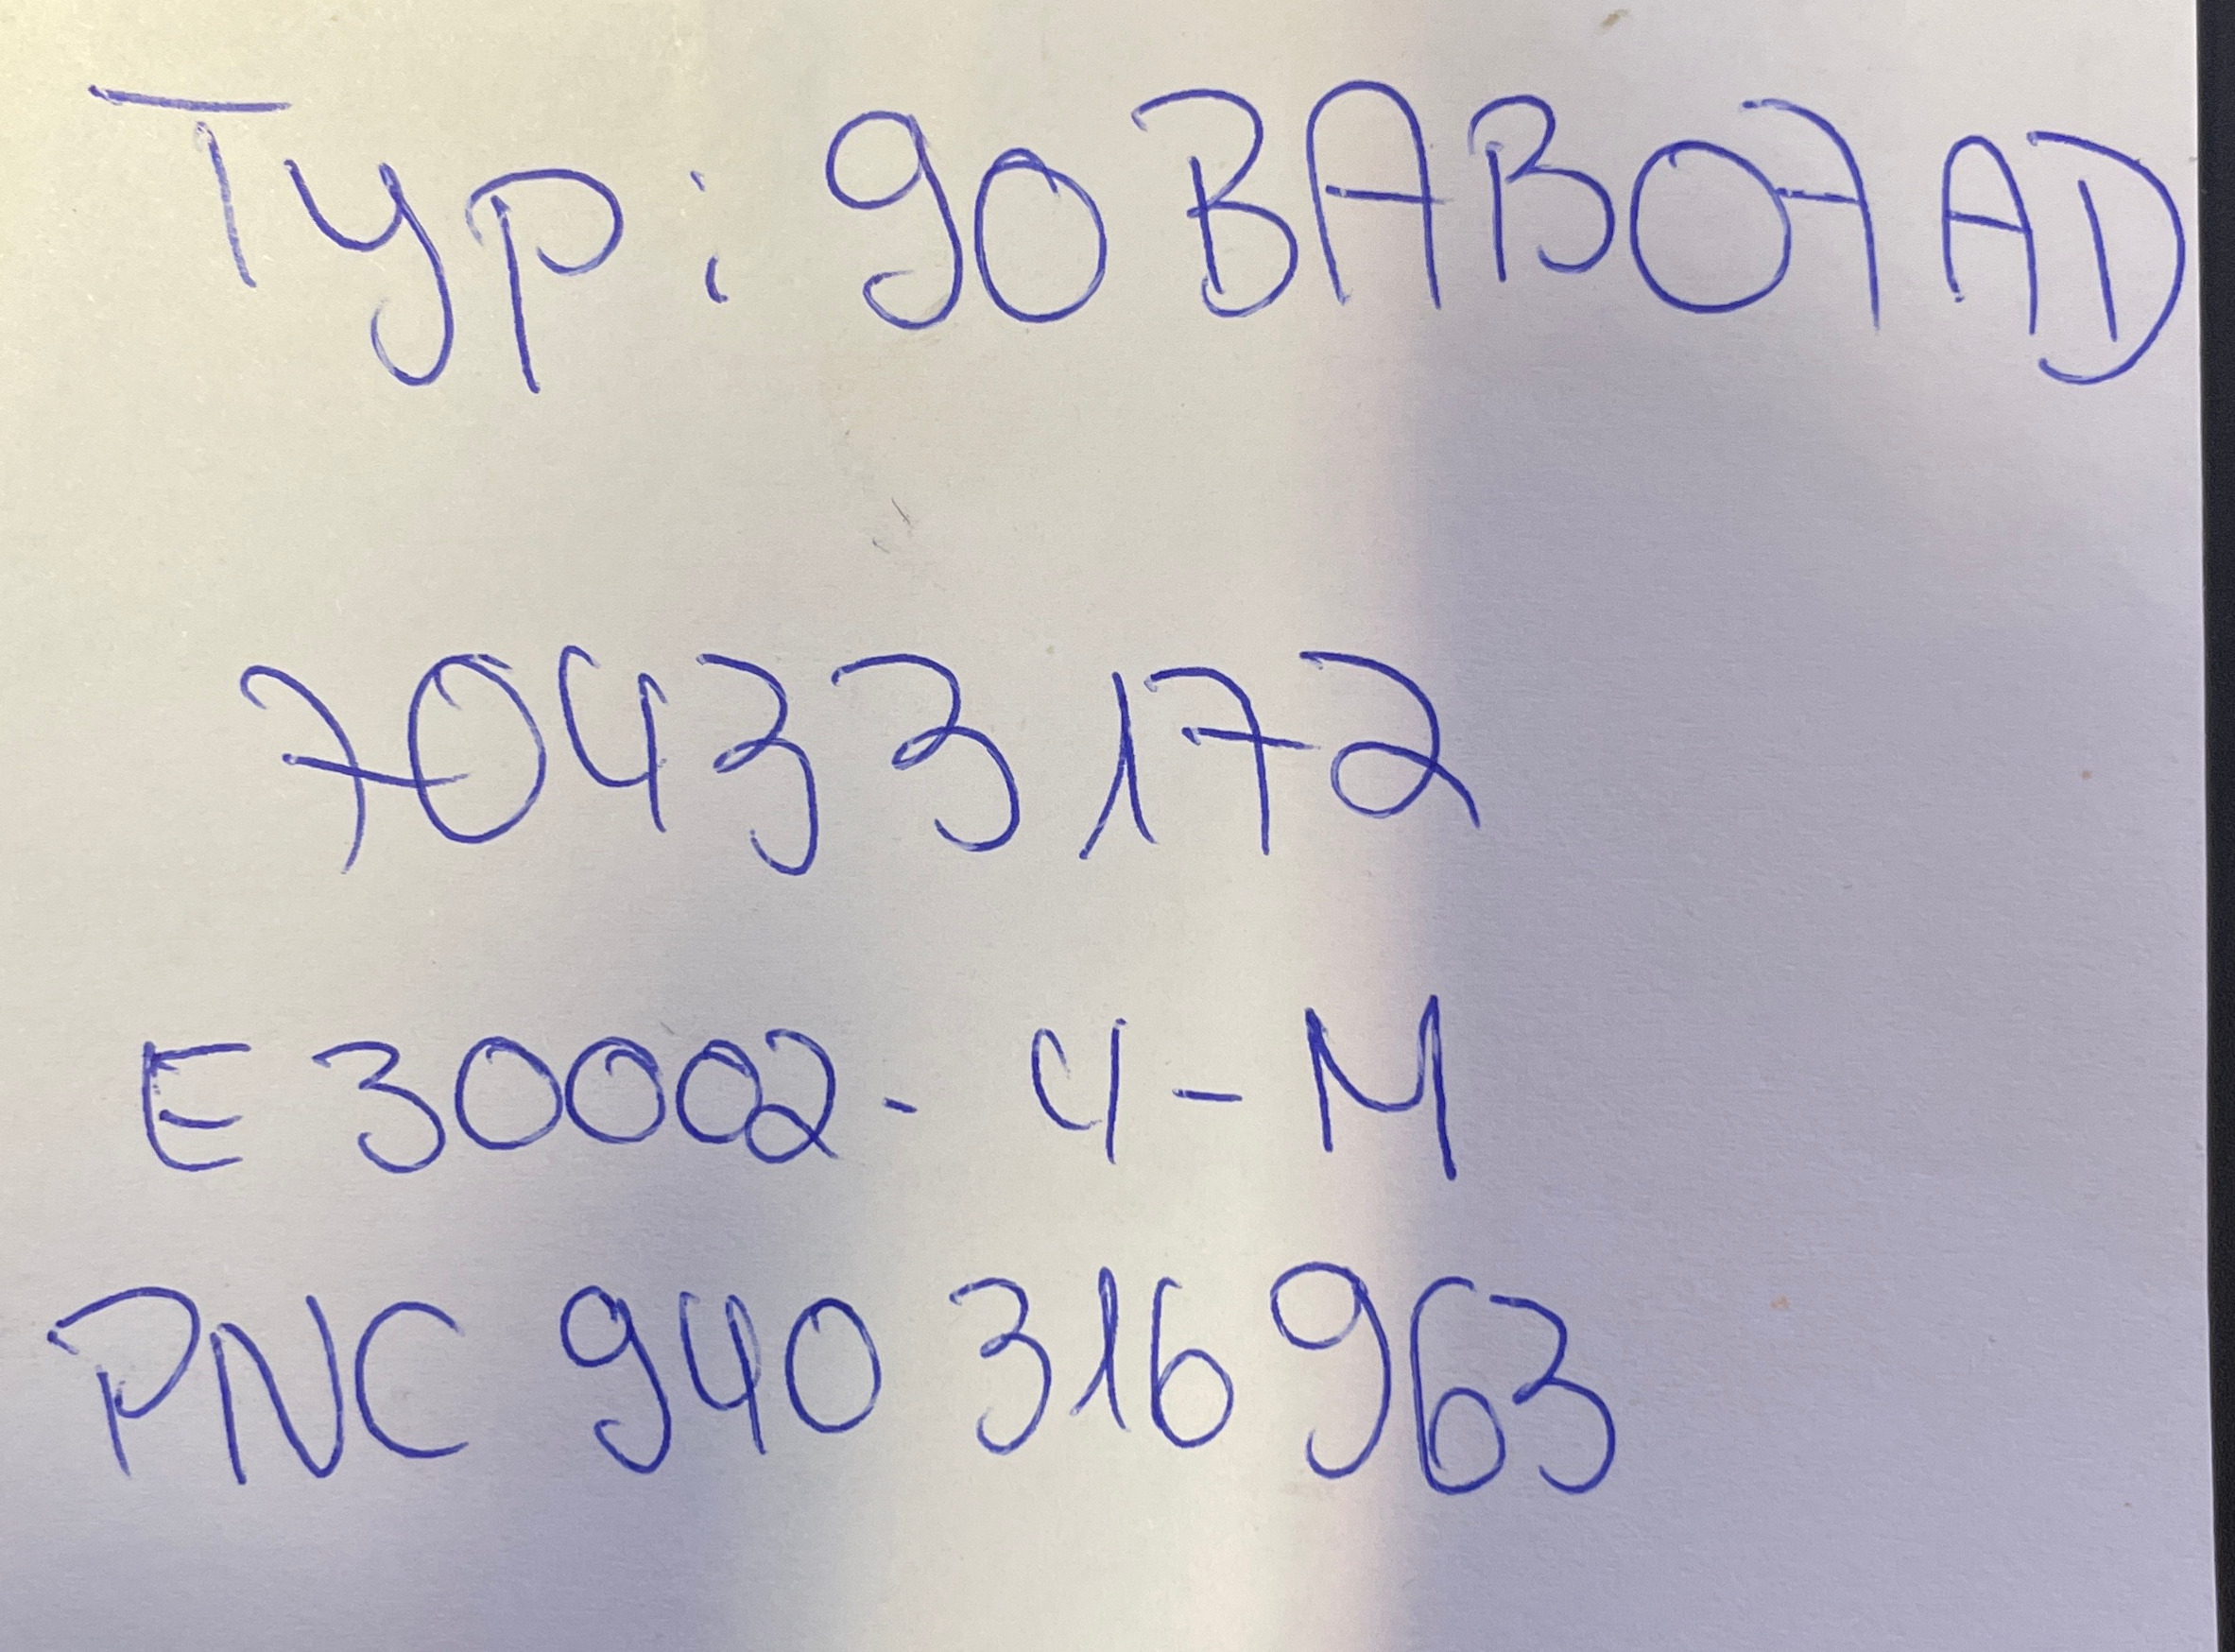 Typ: 90BAB07AD
70433172
E30002-4-M
PNC 940 316 963